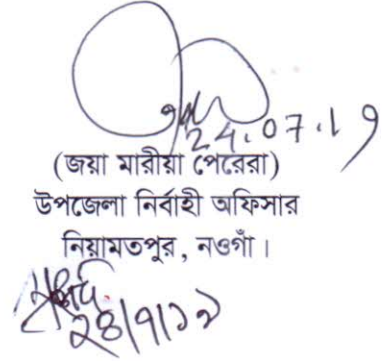 24.07.19
(জয়া মারীয়া পেরেরা)
উপজেলা নির্বাহী অফিসার
নিয়ামতপুর, নওগাঁ।
২৪/৭/১৯